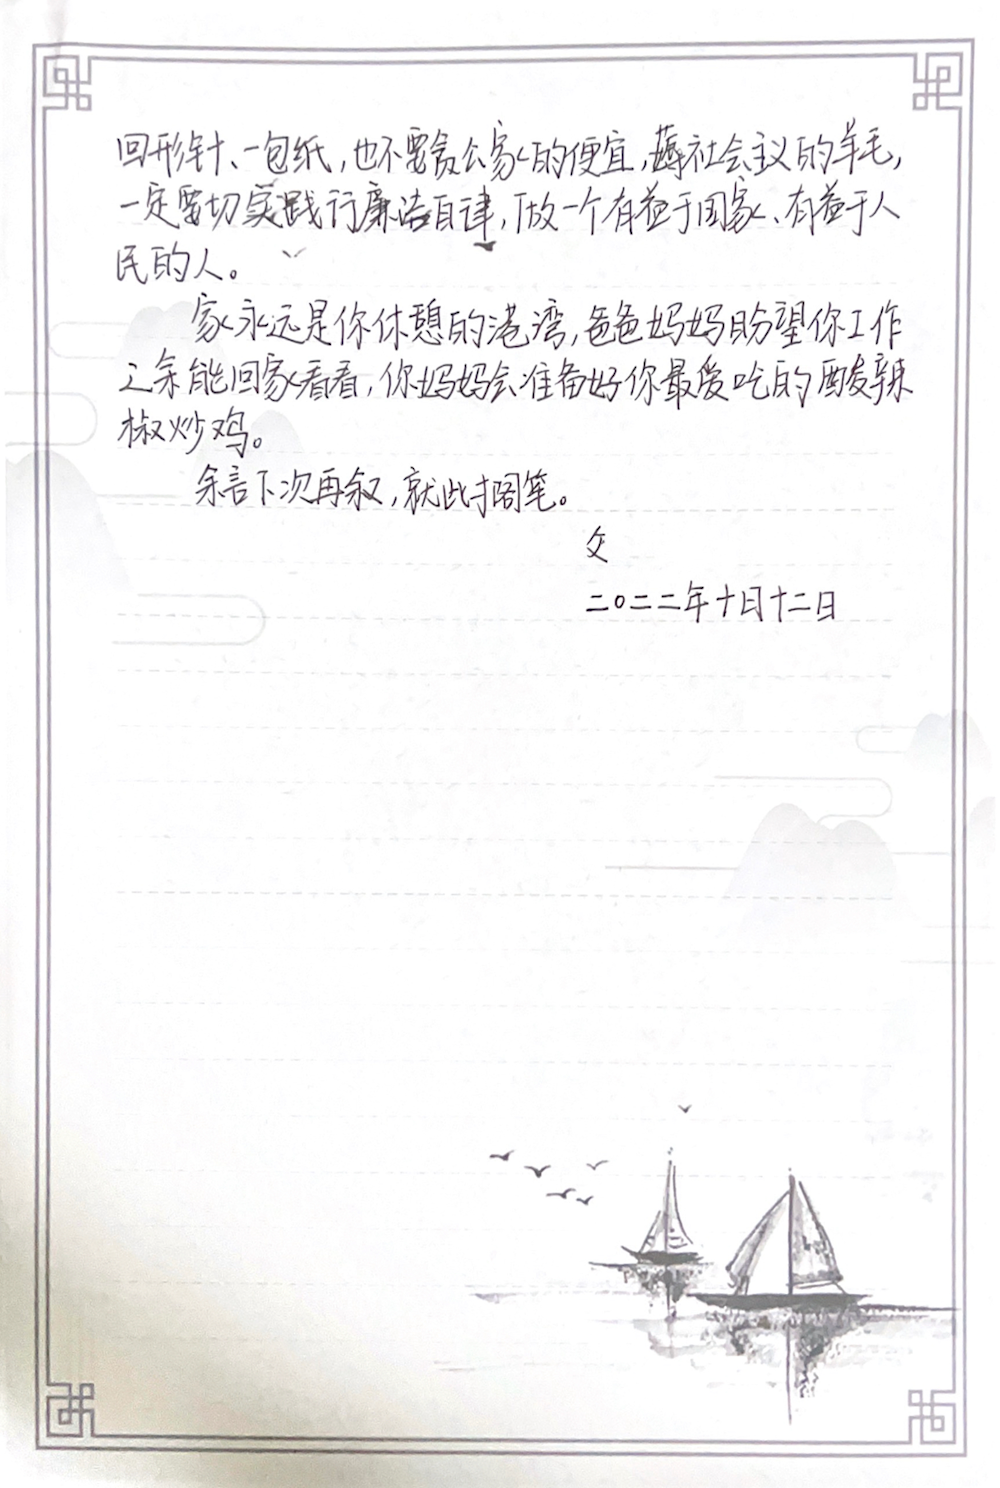 回形针、一包纸，也不要贪公家的便宜，薅社会主义的羊毛，
一定要切实践行廉洁自律，做一个有益于国家、有益于人
民的人。
家永远是你休憩的港湾，爸爸妈妈盼望你工作
之余能回家看看，你妈妈会准备好你最爱吃的酸辣
椒炒鸡。
余言下次再叙，就此搁笔。
父
二〇二二年十月十二日